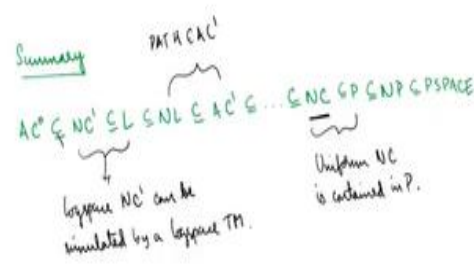 Summary
PATH ⊆ AC¹
AC⁰ ⊊ NC¹ ⊆ L ⊆ NL ⊆ AC¹ ⊆ ... ⊆ NC ⊆ P ⊆ NP ⊆ PSPACE
Logspace NC¹ can be
simulated by a logspace TM.
Uniform NC
is contained in P.